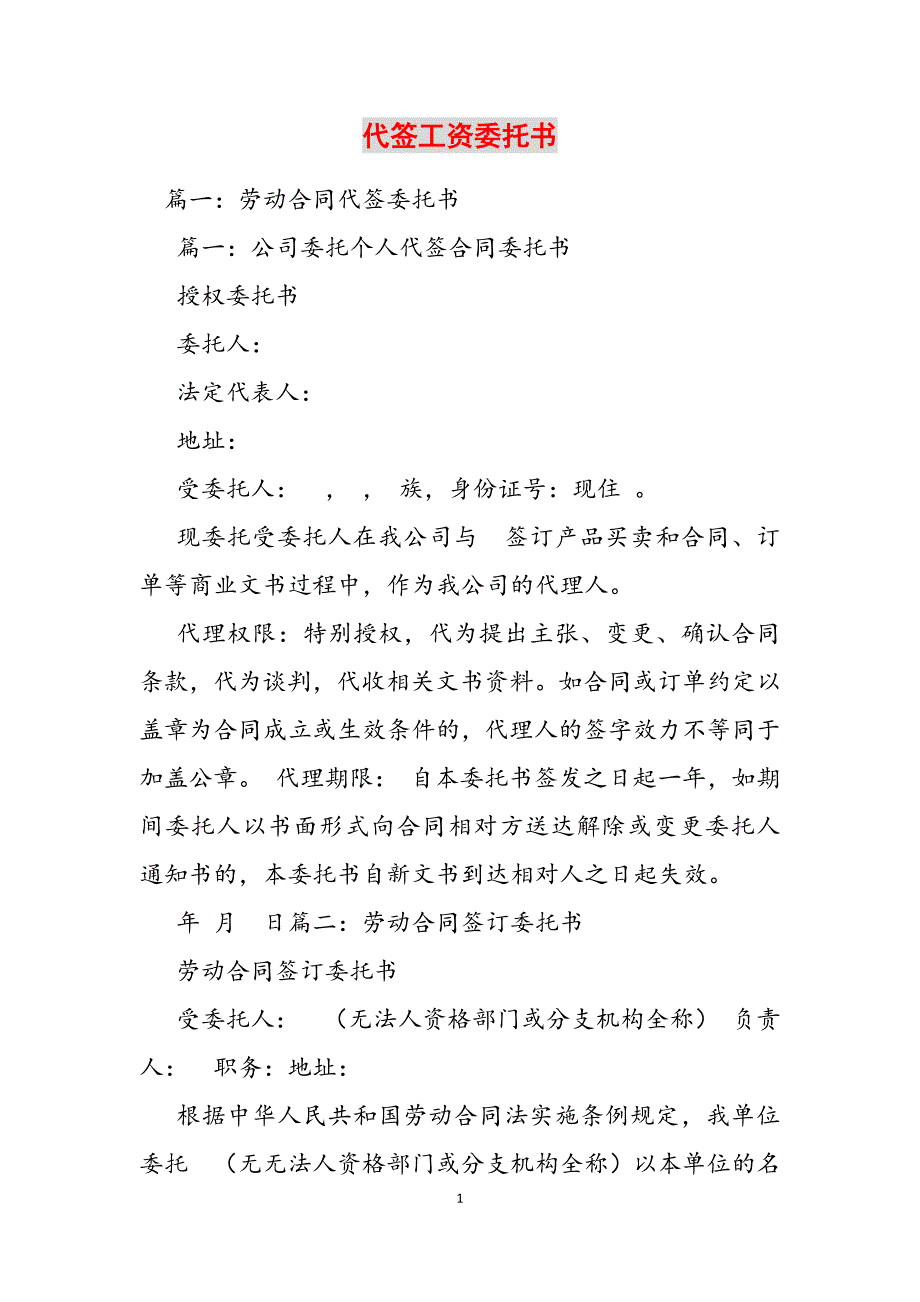 代签工资委托书
篇一：劳动合同代签委托书
篇一：公司委托个人代签合同委托书
授权委托书
委托人：
法定代表人：
地址：
受委托人： ， ， 族，身份证号：现住 。
现委托受委托人在我公司与 签订产品买卖和合同、订
单等商业文书过程中，作为我公司的代理人。
代理权限：特别授权，代为提出主张、变更、确认合同
条款，代为谈判，代收相关文书资料。如合同或订单约定以
盖章为合同成立或生效条件的，代理人的签字效力不等同于
加盖公章。 代理期限： 自本委托书签发之日起一年，如期
间委托人以书面形式向合同相对方送达解除或变更委托人
通知书的，本委托书自新文书到达相对人之日起失效。
年 月 日篇二：劳动合同签订委托书
劳动合同签订委托书
受委托人： （无法人资格部门或分支机构全称） 负责
人： 职务：地址：
根据中华人民共和国劳动合同法实施条例规定，我单位
委托 （无无法人资格部门或分支机构全称）以本单位的名
1